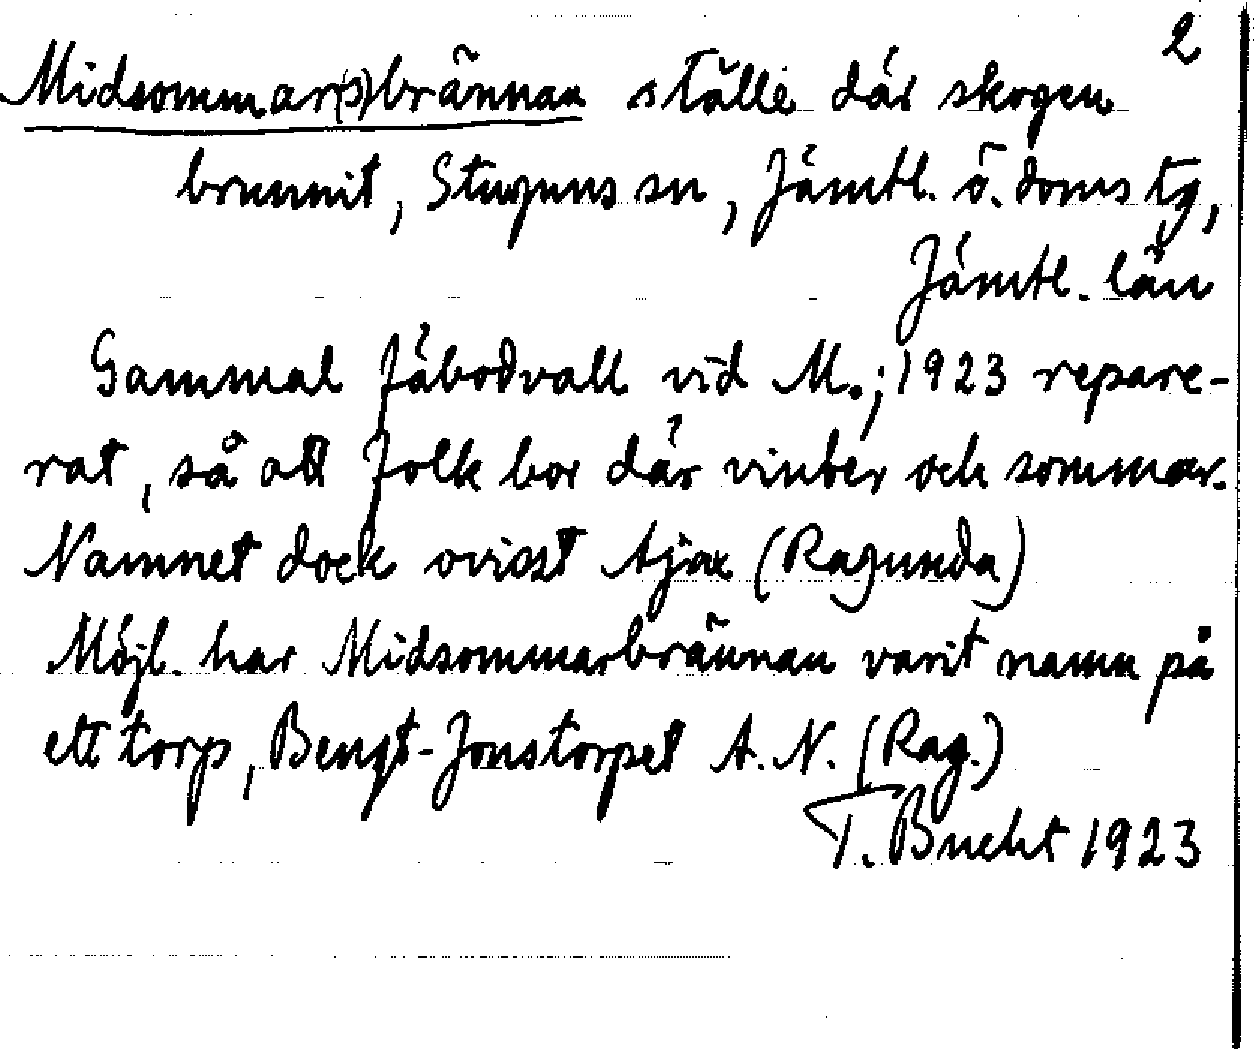 2
Midsommar(s)brännan ställe där skogen
brunnit, Stuguns sn, Jämtl. ö. domstg,
Jämtl. län
Gammal fäbodvall vid M.; 1923 repare-
rat, så att folk bor där vinter och sommar.
Namnet dock ovisst Ajax (Ragunda)
Möjl. har Midsommarbrännan varit namn på
ett torp, Bengt-Jonstorpet A. N. (Rag.)
T. Bucht 1923